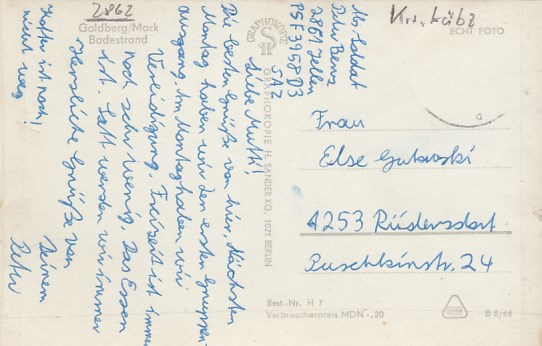 2862
Goldberg/Mark
Badestrand
GRAPHOKOPIE
GRAPHOKOPIE H. SANDER KG, 1071 BERLIN
ECHT FOTO
Mb. Soldat
Peter Benz
2861 Zellen
PSF 5958 D3
A7
Liebe Mutti!
Die besten Grüße von hier. Nächsten
Montag haben wir den ersten Gruppen-
ausgang. Am Montag haben wir
Vereidigung. Freizeit ist immer
noch sehr wenig. Das Essen
ist. Satt werden wir immer
Herzliche Grüße von
Deinem
Peter
Kuffer ist noch,
nicht weg
Frau
Else Gutowski
1253 Rüdersdorf
Puschkinstr. 24
Best.-Nr. H 7
Verbraucherpreis MDN -,20
B 8/66